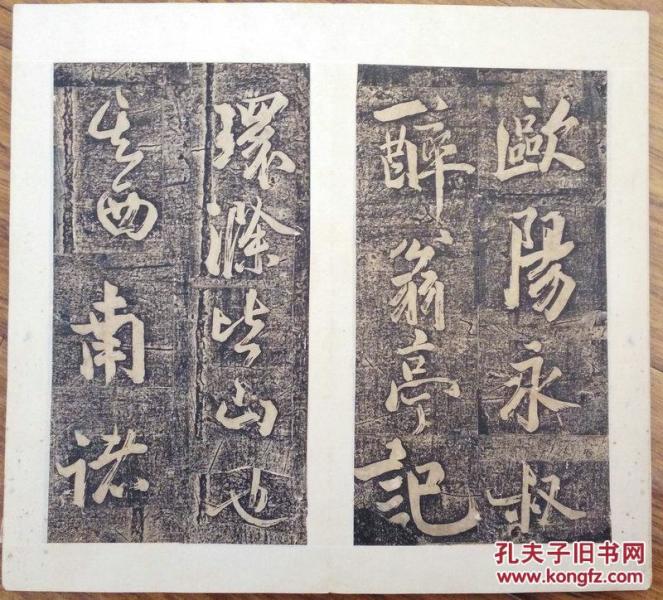 歐陽永叔
醉翁亭記
環滁皆山也
其西南諸
孔夫子旧书网
www.kongfz.com